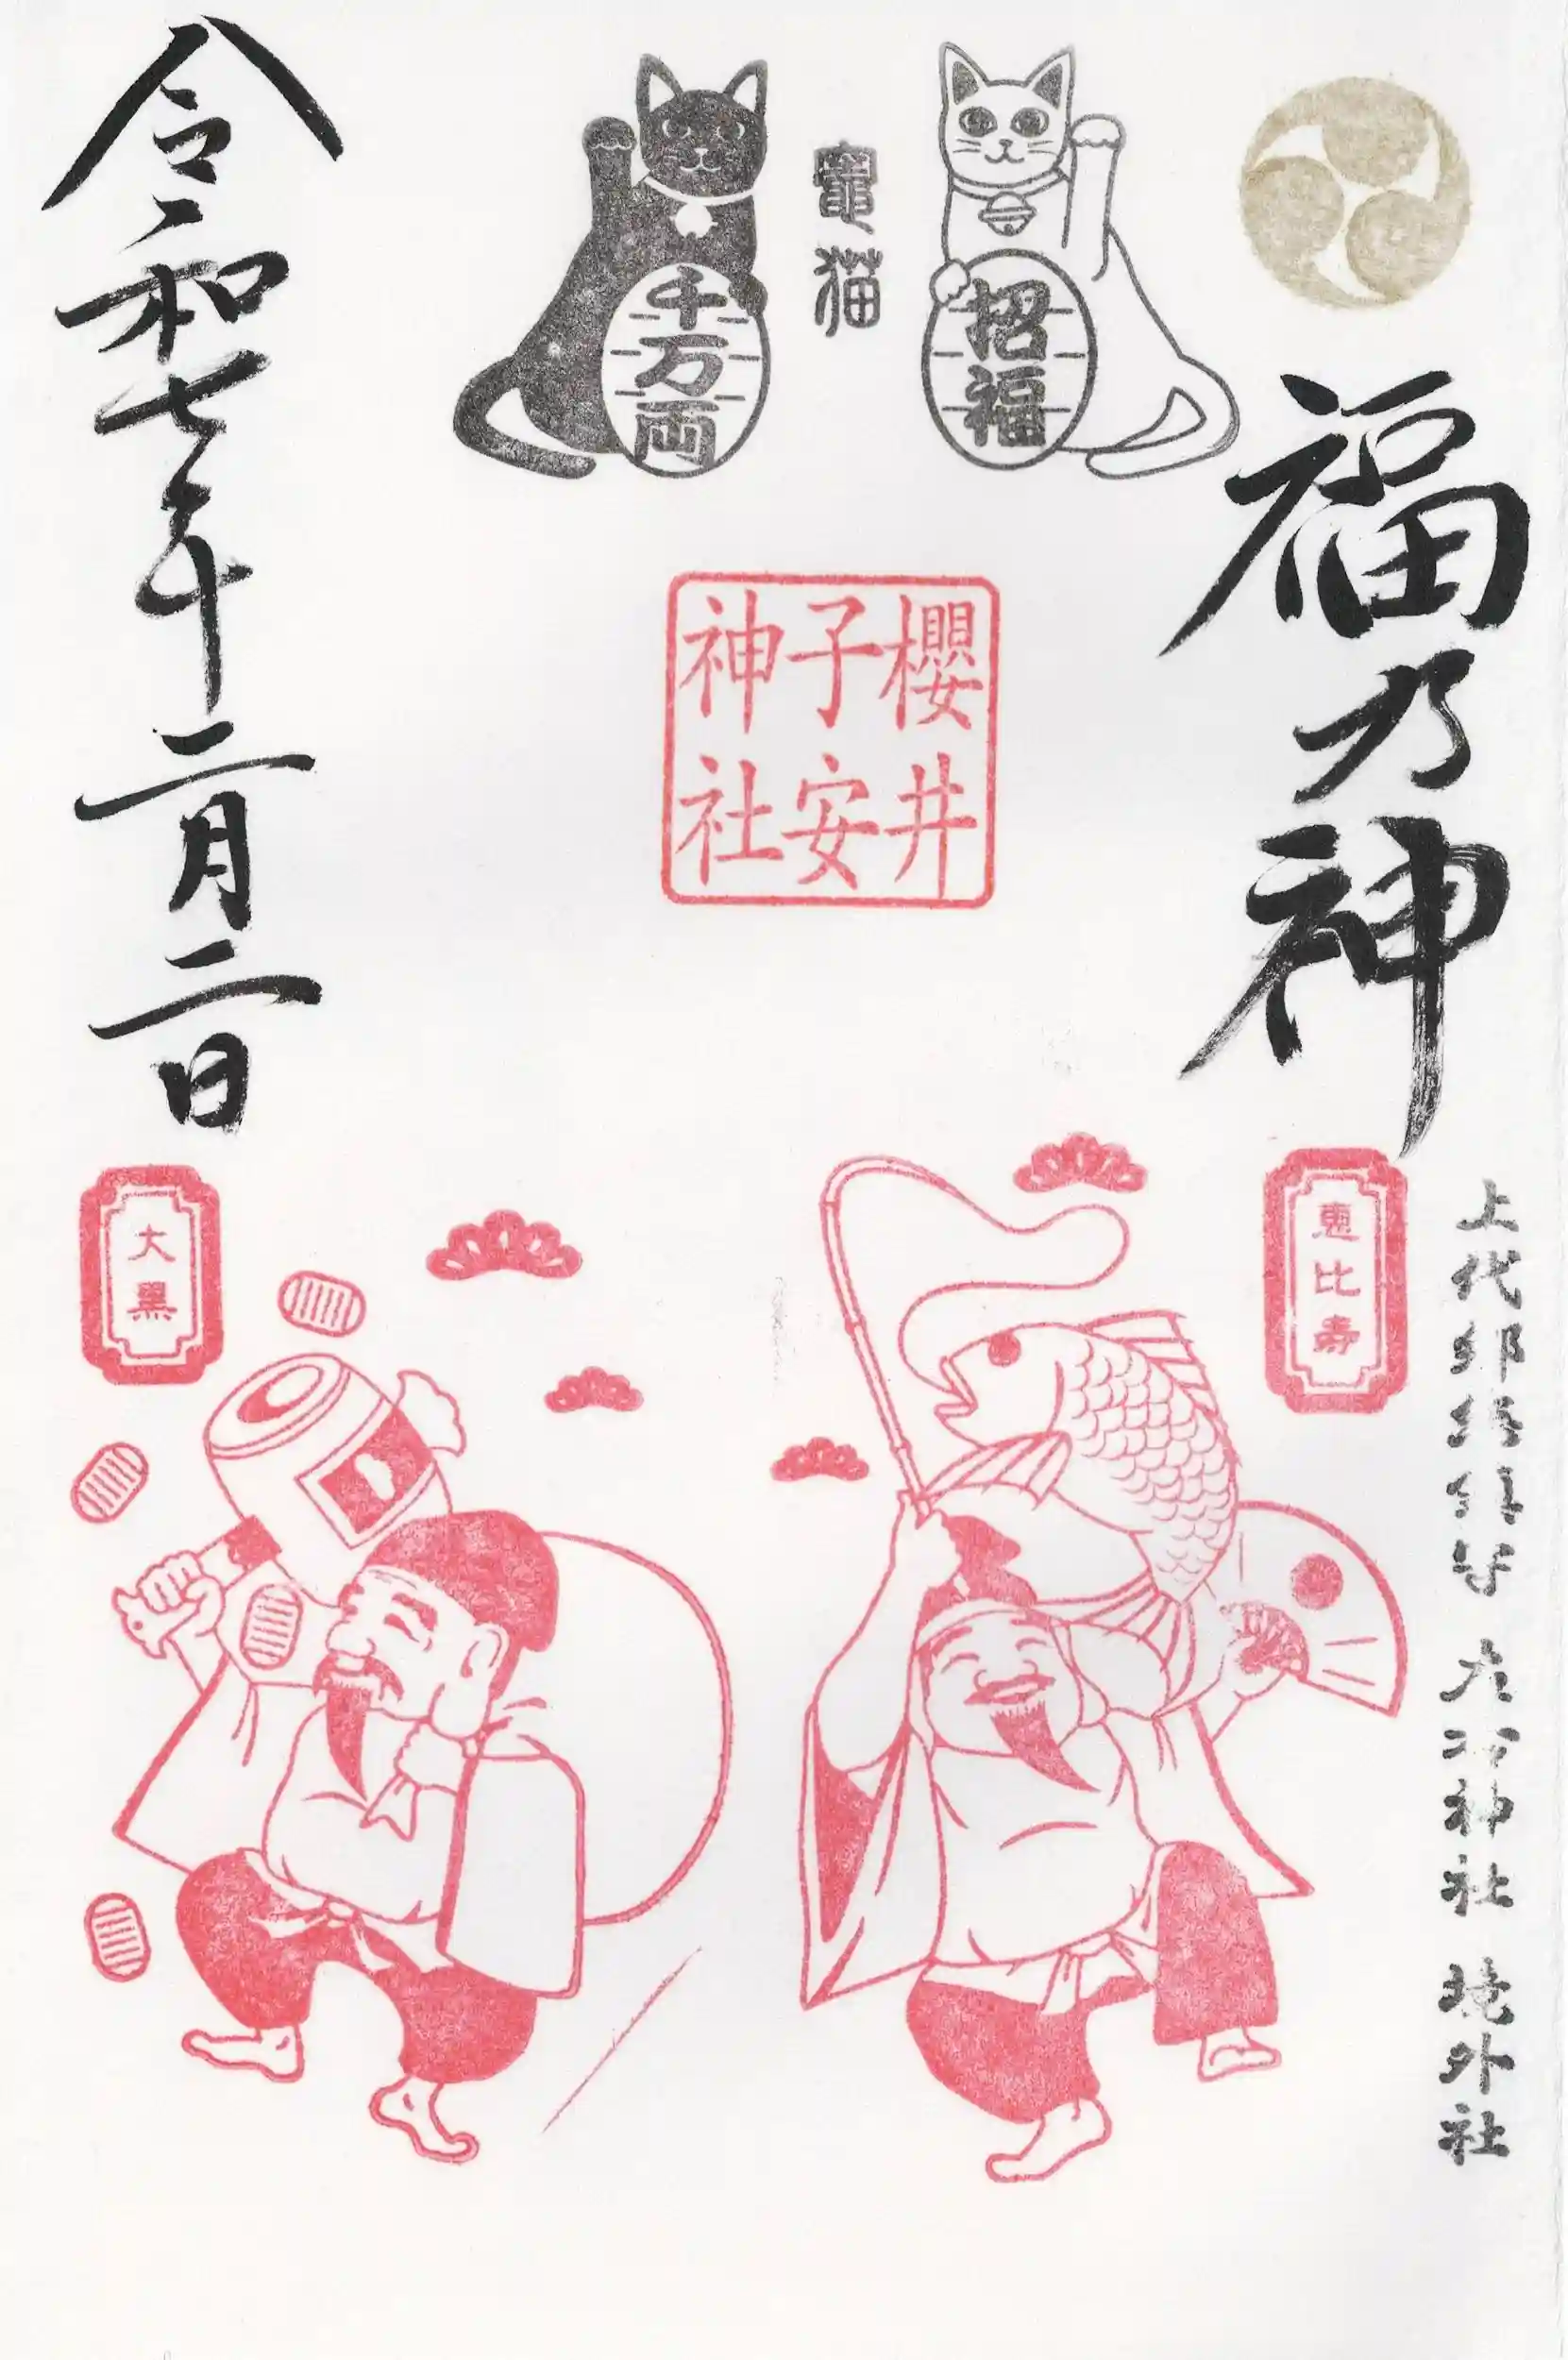 福乃神
上代
神社 境外社
恵比寿
招福
竈猫
千万両
櫻井
子安
神社
令和七年二月二日
大黒